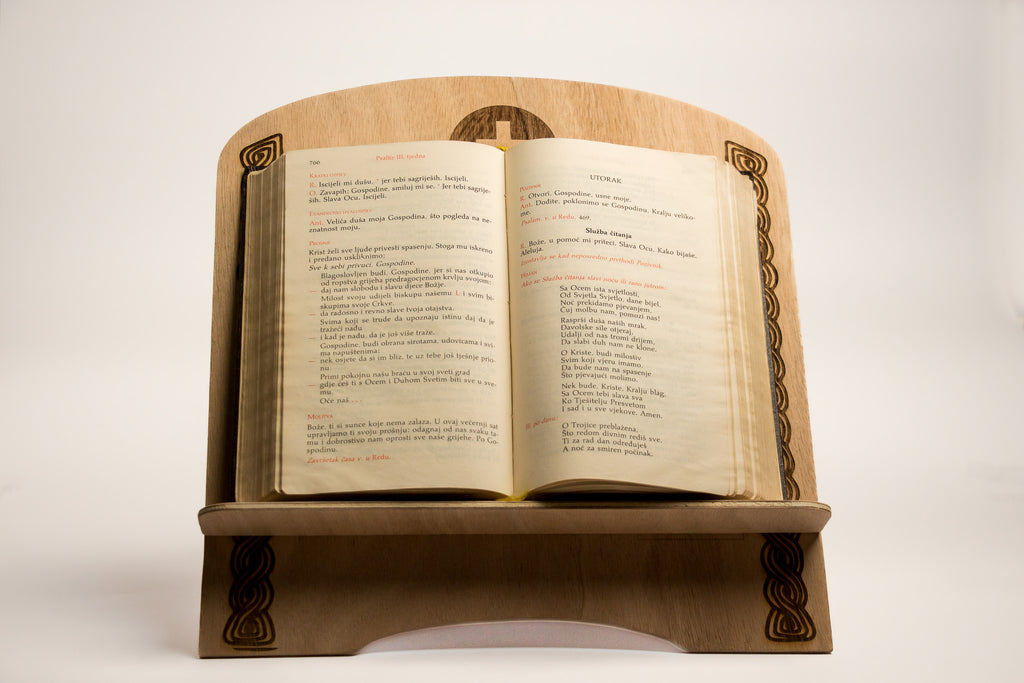 700
Psaltir III. tjedna
KRATKI OTPJEV
R. Iscijeli mi dušu, * jer tebi sagriješih. Iscijeli.
O. Zavapih: Gospodine, smiluj mi se. * Jer tebi sagrije-
ših. Slava Ocu. Iscijeli.
EVANĐEOSKI HVALOSPJEV
Ant. Veliča duša moja Gospodina, što pogleda na ne-
znatnost moju.
PROŠNJE
Krist želi sve ljude privesti spasenju. Stoga mu iskreno
i predano uskliknimo:
Sve k sebi privuci, Gospodine.
Blagoslovljen budi, Gospodine, jer si nas otkupio
od ropstva grijeha predragocjenom krvlju svojom:
— daj nam slobodu i slavu djece Božje.
Milost svoju udijeli biskupu našemu I. i svim bi-
skupima svoje Crkve,
— da radosno i revno slave tvoja otajstva.
Svima koji se trude da upoznaju istinu daj da je
tražeći nađu
— i kad je nađu, da je još više traže.
Gospodine, budi obrana sirotama, udovicama i svi-
ma napuštenima:
— nek osjete da si im bliz, te uz tebe još tješnje prio-
nu.
Primi pokojnu našu braću u svoj sveti grad
— gdje ćeš ti s Ocem i Duhom Svetim biti sve u sve-
mu.
Oče naš . . .
MOLITVA
Bože, ti si sunce koje nema zalaza. U ovaj večernji sat
upravljamo ti svoju prošnju: odagnaj od nas svaku ta-
mu i dobrostivo nam oprosti sve naše grijehe. Po Go-
spodinu.
Završetak časa v. u Redu.
UTORAK
POZIVNIK
R. Otvori, Gospodine, usne moje.
Ant. Dođite, poklonimo se Gospodinu, Kralju veliko-
me.
Psalam, v. u Redu, 469.
Služba čitanja
R. Bože, u pomoć mi priteci. Slava Ocu. Kako bijaše.
Aleluja.
Izostavlja se kad neposredno prethodi Pozivnik.
HIMAN
Ako se Služba čitanja slavi noću ili rano jutrom:
Sa Ocem ista svjetlosti,
Od Svjetla Svjetlo, dane bijel,
Noć prekidamo pjevanjem,
Čuj molbu nam, pomozi nas!
Rasprši duša naših mrak,
Đavolske sile otjeraj,
Udalji od nas tromi drijem,
Da slabi duh nam ne klone.
O Kriste, budi milostiv
Svim koji vjeru imamo,
Da bude nam na spasenje
Što pjevajući molimo.
Nek bude, Kriste, Kralju blag,
Sa Ocem tebi slava sva
Ko Tješitelju Presvetom
I sad i u sve vjekove. Amen.
Ili po danu:
O Trojice preblažena,
Što redom divnim rediš sve,
Ti za rad dan određuješ
A noć za smiren počinak.